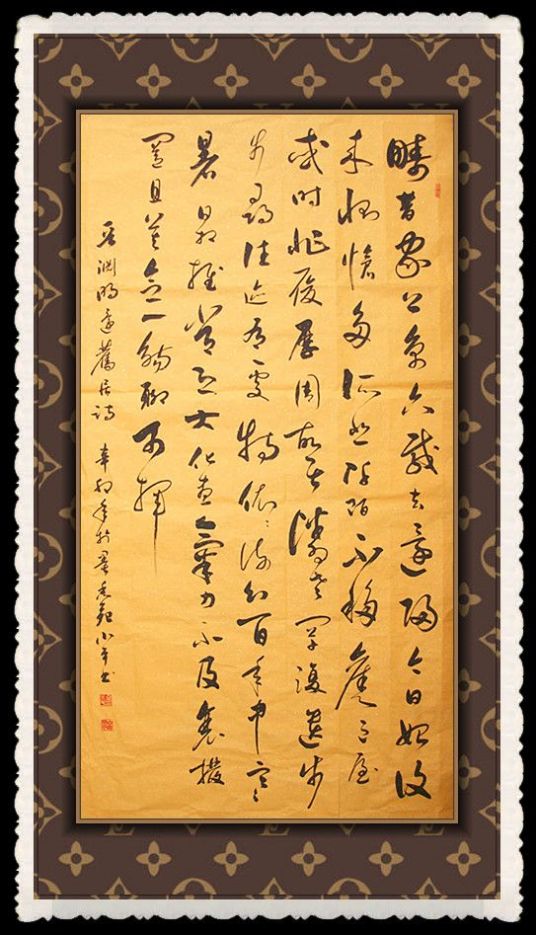 疇昔家上京六載去還歸今日始復
来惻愴多所悲阡陌不移舊邑屋
或時非履歷周故居鄰老罕復遺步
步尋往迹有處特依依流幻百年中寒
暑日推常恐大化盡氣力不及衰撥
置且莫念一觴聊可揮
晋淵明還舊居詩 辛卯年於墨香苑小平书